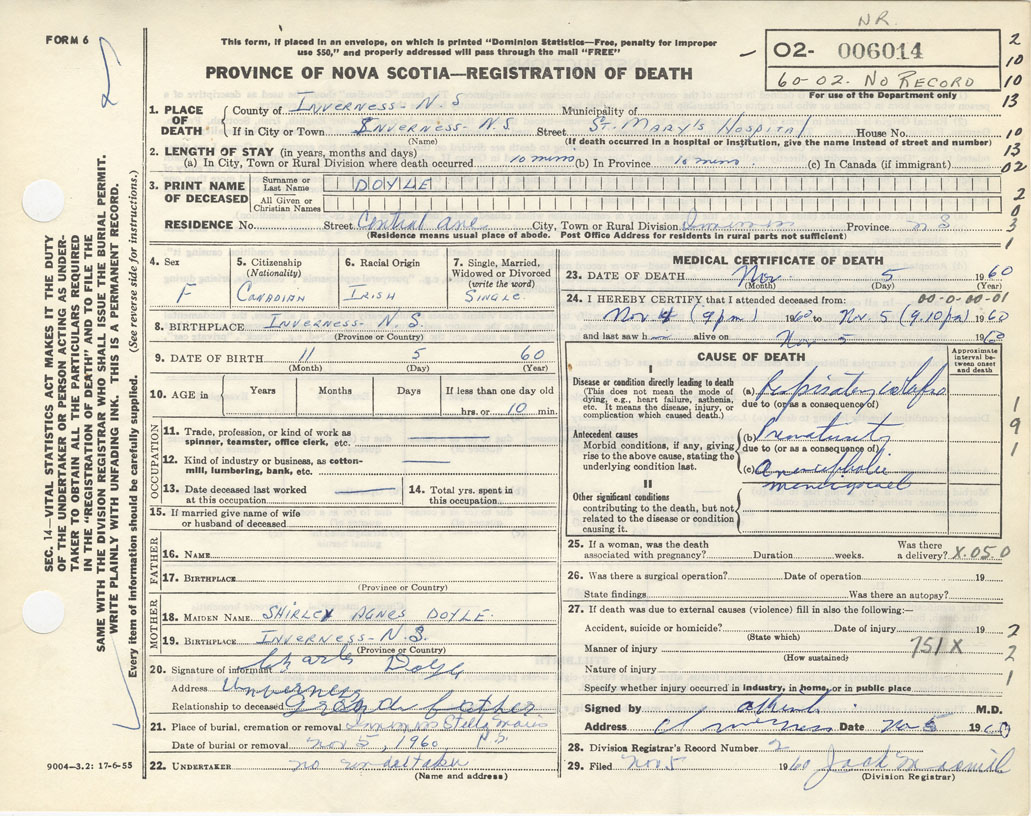 NR.
FORM 6
This form, if placed in an envelope, on which is printed "Dominion Statistics—Free, penalty for improper
use $50," and properly addressed will pass through the mail "FREE"
O2- 006014
60-02. NO RECORD
For use of the Department only
PROVINCE OF NOVA SCOTIA—REGISTRATION OF DEATH
2
10
10
13
1. PLACE OF DEATH
County of INVERNESS- N.S Municipality of
If in City or Town INVERNESS- N.S. Street ST. MARY'S HOSPITAL House No.
(Name) (If death occurred in a hospital or institution, give the name instead of street and number)
10
13
02
2. LENGTH OF STAY (in years, months and days)
(a) In City, Town or Rural Division where death occurred 10 mins (b) In Province 10 mins. (c) In Canada (if immigrant)
3. PRINT NAME OF DECEASED
Surname or Last Name DOYLE
All Given or Christian Names
2
0
3
1
RESIDENCE No. Street Central Ave. City, Town or Rural Division Province N S
(Residence means usual place of abode. Post Office Address for residents in rural parts not sufficient)
4. Sex
F
5. Citizenship
(Nationality)
CANADIAN
6. Racial Origin
IRISH
7. Single, Married,
Widowed or Divorced
(write the word)
SINGLE
8. BIRTHPLACE INVERNESS- N.S.
(Province or Country)
9. DATE OF BIRTH 11 5 60
(Month) (Day) (Year)
10. AGE in
Years Months Days If less than one day old
hrs. or 10 min.
OCCUPATION
11. Trade, profession or kind of work as
spinner, teamster, office clerk, etc.
12. Kind of industry or business, as cotton-
mill, lumbering, bank, etc.
13. Date deceased last worked
at this occupation
14. Total yrs. spent in
this occupation
15. If married give name of wife
or husband of deceased
FATHER
16. NAME
17. BIRTHPLACE
(Province or Country)
MOTHER
18. MAIDEN NAME SHIRLEY AGNES DOYLE.
19. BIRTHPLACE INVERNESS- N.S.
(Province or Country)
20. Signature of informant Charles Doyle
Address Inverness
Relationship to deceased Grandfather
21. Place of burial, cremation or removal Stella Maris
Date of burial or removal Nov 5, 1960 N S
22. UNDERTAKER no undertaker
(Name and address)
MEDICAL CERTIFICATE OF DEATH
23. DATE OF DEATH Nov 5 1960
(Month) (Day) (Year)
24. I HEREBY CERTIFY that I attended deceased from: 00-0-00-01
Nov 4 (9 pm) 1960 to Nov. 5 (9.10 pm) 1960
and last saw h alive on Nov 5 1960
CAUSE OF DEATH
Approximate
interval be-
tween onset
and death
I
Disease or condition directly leading to death
(This does not mean the mode of
dying, e.g., heart failure, asthenia,
etc. It means the disease, injury, or
complication which caused death.)
(a) Respiratory collapse
due to (or as a consequence of)
Antecedent causes
Morbid conditions, if any, giving
rise to the above cause, stating the
underlying condition last.
(b) Prematurity
due to (or as a consequence of)
(c) Anencephalic
II
Other significant conditions
contributing to the death, but not
related to the disease or condition
causing it.
1
9
1
25. If a woman, was the death
associated with pregnancy? Duration weeks. Was there
a delivery? X.050
26. Was there a surgical operation? Date of operation 19
State findings Was there an autopsy?
27. If death was due to external causes (violence) fill in also the following:—
Accident, suicide or homicide? Date of injury 19
(State which)
Manner of injury 751X
(How sustained)
Nature of injury
Specify whether injury occurred in industry, in home, or in public place
2
2
1
Signed by M.D.
Address Inverness Date Nov 5 1960
28. Division Registrar's Record Number 2
29. Filed Nov 5 1960
(Division Registrar)
SEC. 14—VITAL STATISTICS ACT MAKES IT THE DUTY
OF THE UNDERTAKER OR PERSON ACTING AS UNDER-
TAKER TO OBTAIN ALL THE PARTICULARS REQUIRED
IN THE "REGISTRATION OF DEATH" AND TO FILE THE
SAME WITH THE DIVISION REGISTRAR WHO SHALL ISSUE THE BURIAL PERMIT.
WRITE PLAINLY WITH UNFADING INK. THIS IS A PERMANENT RECORD.
Every item of information should be carefully supplied. (See reverse side for instructions.)
9004-3.2: 17-6-55